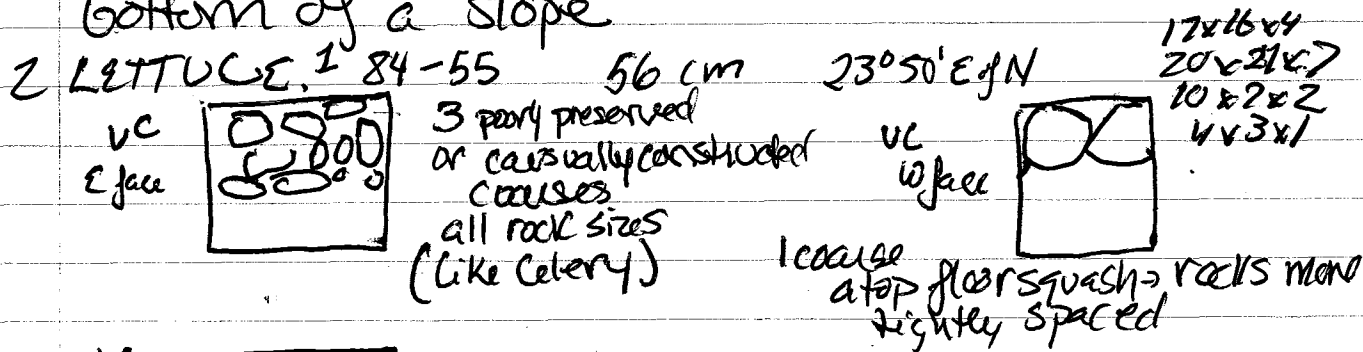 bottom of a slope
2 LETTUCE. 1 84-55 56 cm 23°50' E of N
17x16x4
20x21x7
10x2x2
4x3x1
VC
E face
3 poorly preserved
or causually constructed
courses
all rock sizes
(like Celery)
VC
W face
1 course
atop floor squash → rocks more
tightly spaced